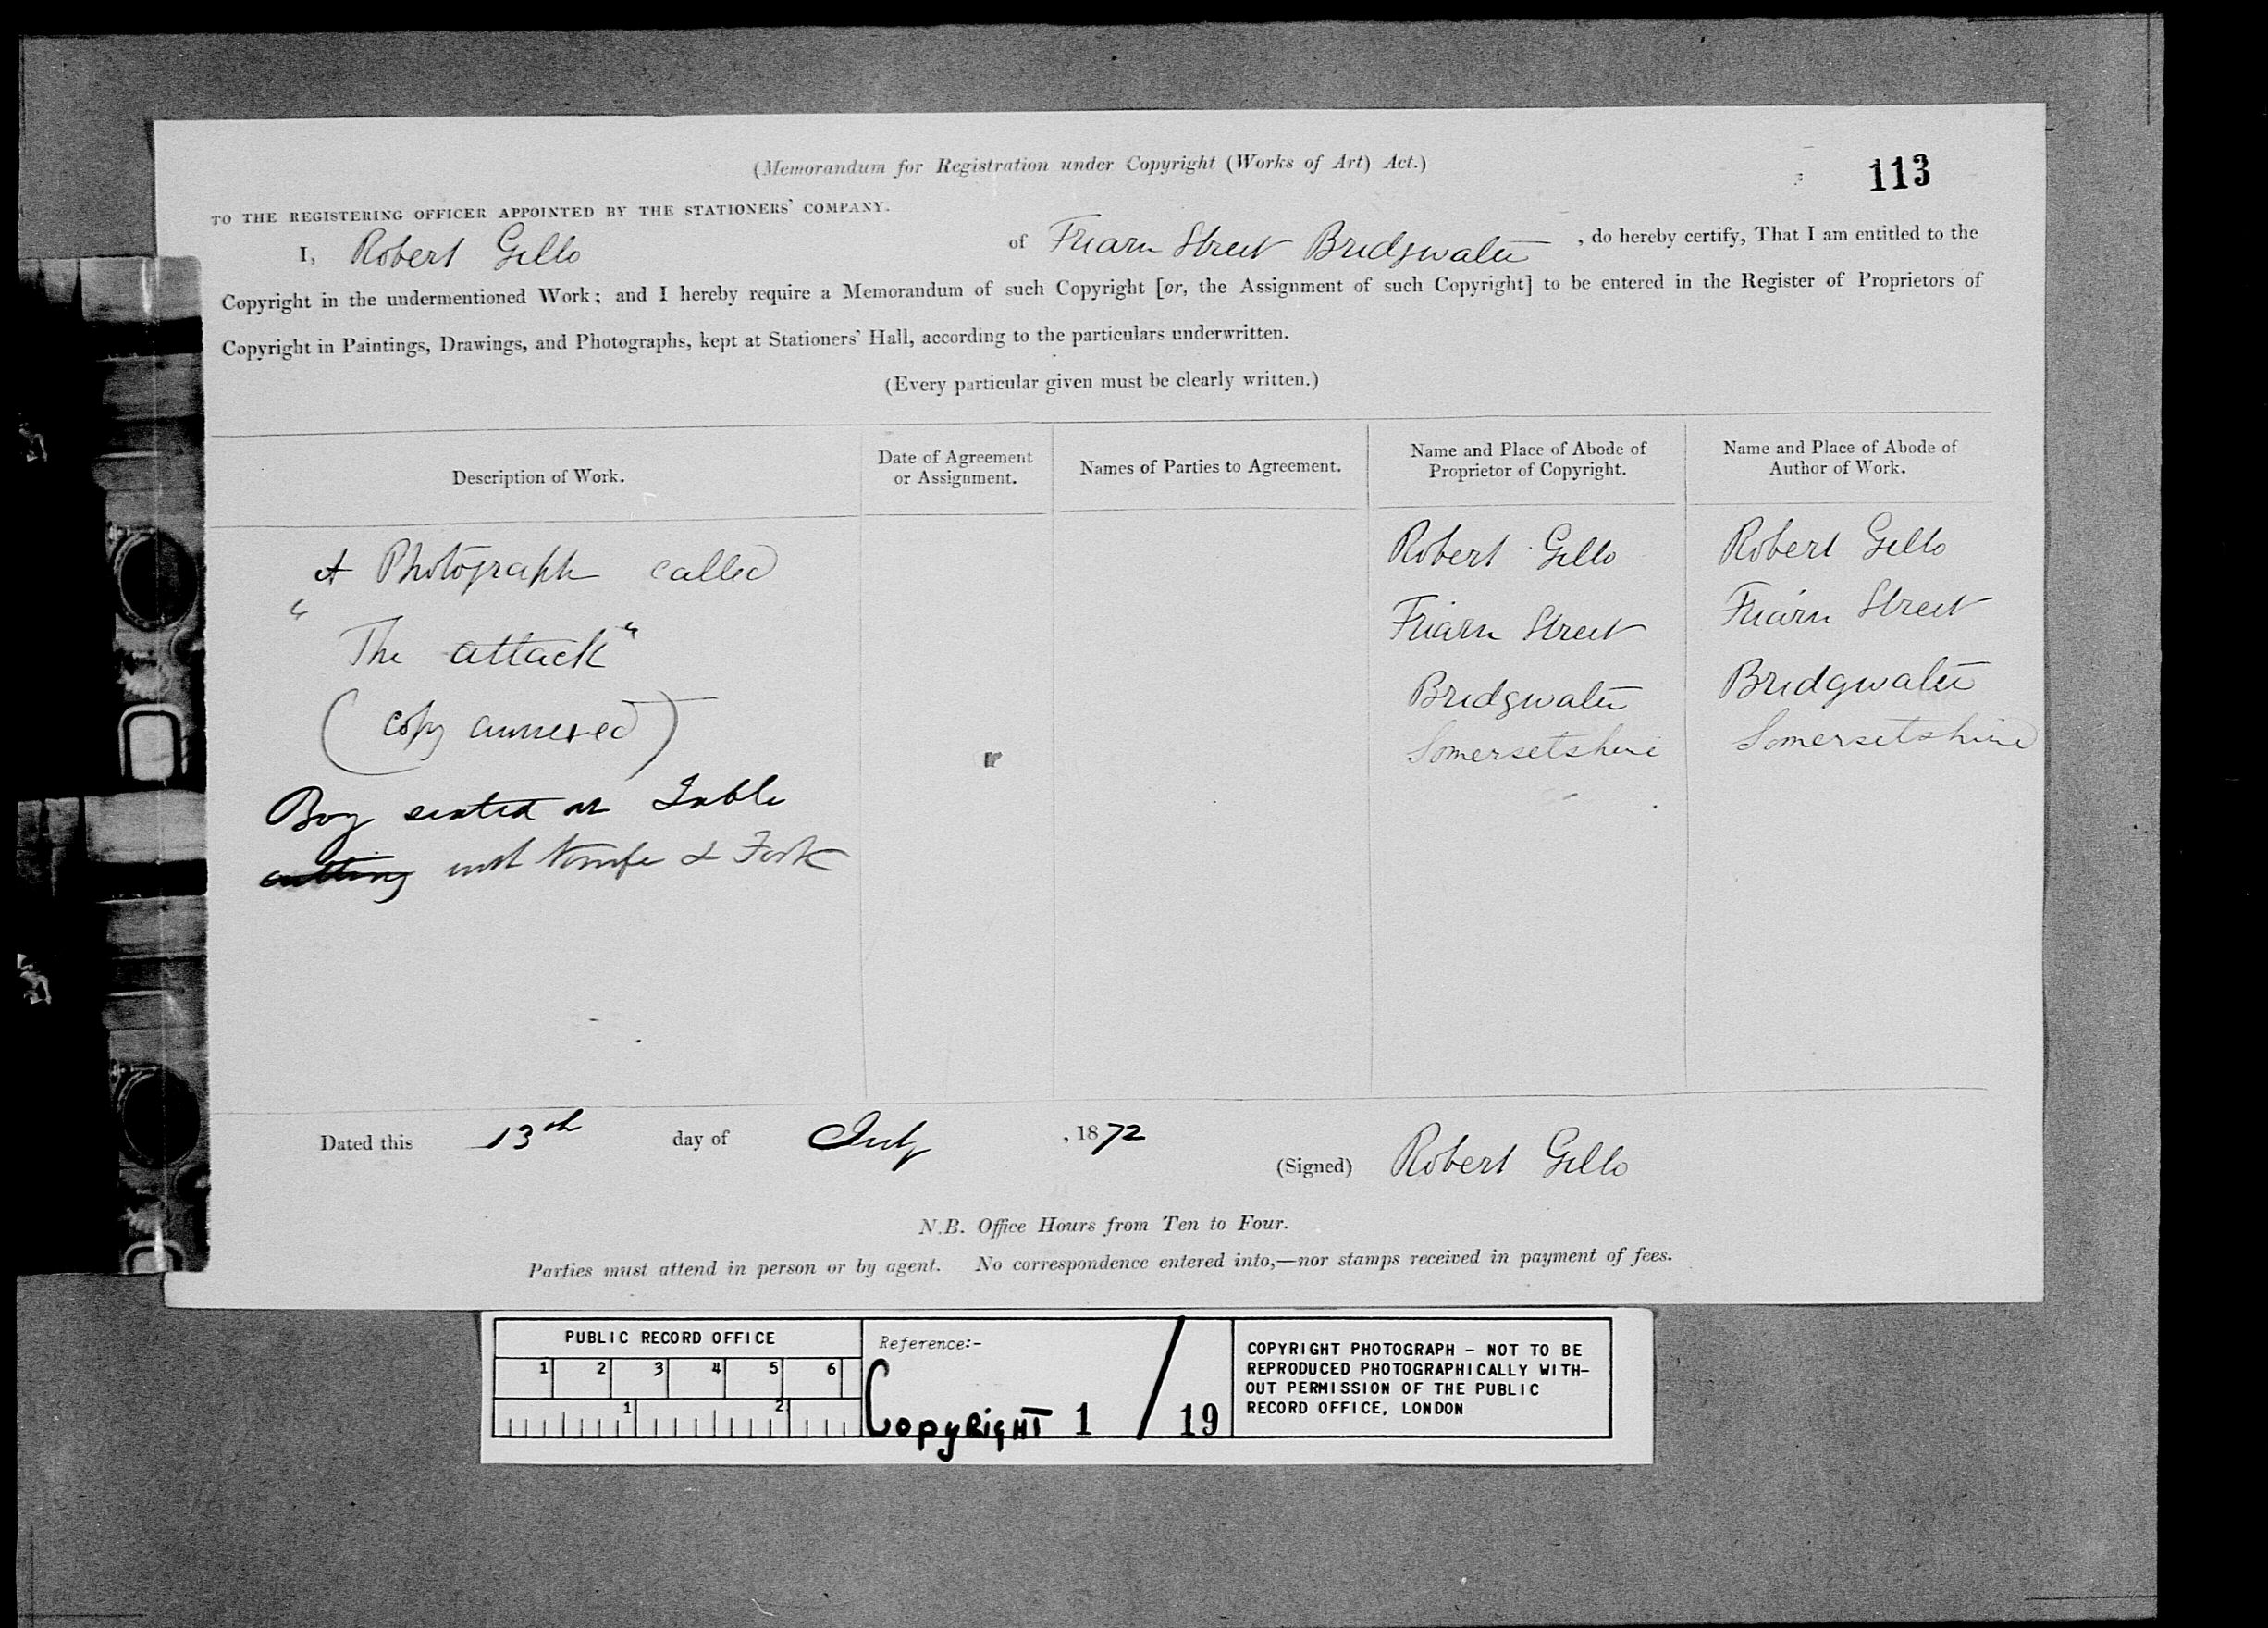 (Memorandum for Registration under Copyright (Works of Art) Act.)
113
TO THE REGISTERING OFFICER APPOINTED BY THE STATIONERS' COMPANY.
I, Robert Gillo of Friarn Street Bridgwater, do hereby certify, That I am entitled to the
Copyright in the undermentioned Work; and I hereby require a Memorandum of such Copyright [or, the Assignment of such Copyright] to be entered in the Register of Proprietors of
Copyright in Paintings, Drawings, and Photographs, kept at Stationers' Hall, according to the particulars underwritten.
(Every particular given must be clearly written.)
Description of Work.
Date of Agreement
or Assignment.
Names of Parties to Agreement.
Name and Place of Abode of
Proprietor of Copyright.
Name and Place of Abode of
Author of Work.
A Photograph called
"The attack"
(copy annexed)
Boy seated at Table
cutting with Knife & Fork
Robert Gillo
Friarn Street
Bridgwater
Somersetshire
Robert Gillo
Friarn Street
Bridgwater
Somersetshire
Dated this 13th day of July, 1872
(Signed) Robert Gillo
N.B. Office Hours from Ten to Four.
Parties must attend in person or by agent. No correspondence entered into,—nor stamps received in payment of fees.
PUBLIC RECORD OFFICE
1 2 3 4 5 6
1 2
Reference:-
Copyright 1 / 19
COPYRIGHT PHOTOGRAPH - NOT TO BE
REPRODUCED PHOTOGRAPHICALLY WITH-
OUT PERMISSION OF THE PUBLIC
RECORD OFFICE, LONDON